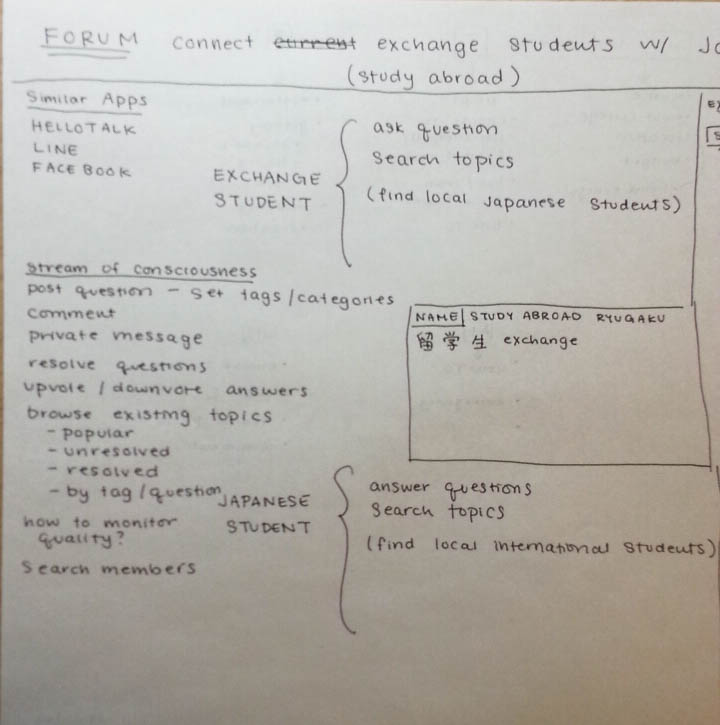 FORUM connect current exchange students w/
(study abroad)
Similar Apps
HELLOTALK
LINE
FACEBOOK
EXCHANGE
STUDENT
ask question
Search topics
(find local Japanese students)
Stream of consciousness
post question - set tags/categories
comment
private message
resolve questions
upvote / downvote answers
browse existing topics
- popular
- unresolved
- resolved
- by tag/question
how to monitor
quality?
Search members
NAME STUDY ABROAD RYUGAKU
留学生 exchange
JAPANESE
STUDENT
answer questions
Search topics
(find local international students)